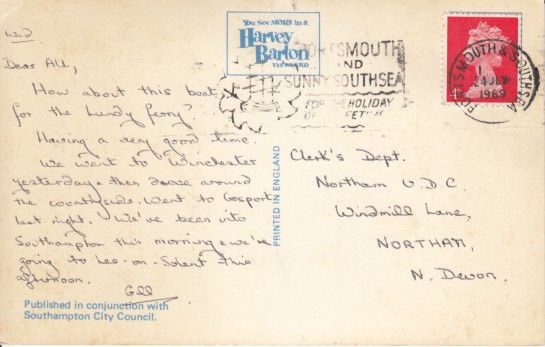 You See MORE in a
Harvey
Barton
VIEWCARD
PORTSMOUTH
AND
SUNNY SOUTHSEA
FOR THE HOLIDAY
PORTSMOUTH & SOUTHSEA
JLY
1969
4D
Wed
Dear All,
How about this boat
for the Lundy ferry?
Having a very good time.
We went to Winchester
yesterday & then drove around
the countryside. Went to Gosport
last night. We've been into
Southampton this morning & we're
going to Lee-on-Solent this
afternoon.
Gill
Published in conjunction with
Southampton City Council.
PRINTED IN ENGLAND
Clerk's Dept.
Northam U.D.C.
Windmill Lane,
NORTHAM,
N. Devon.